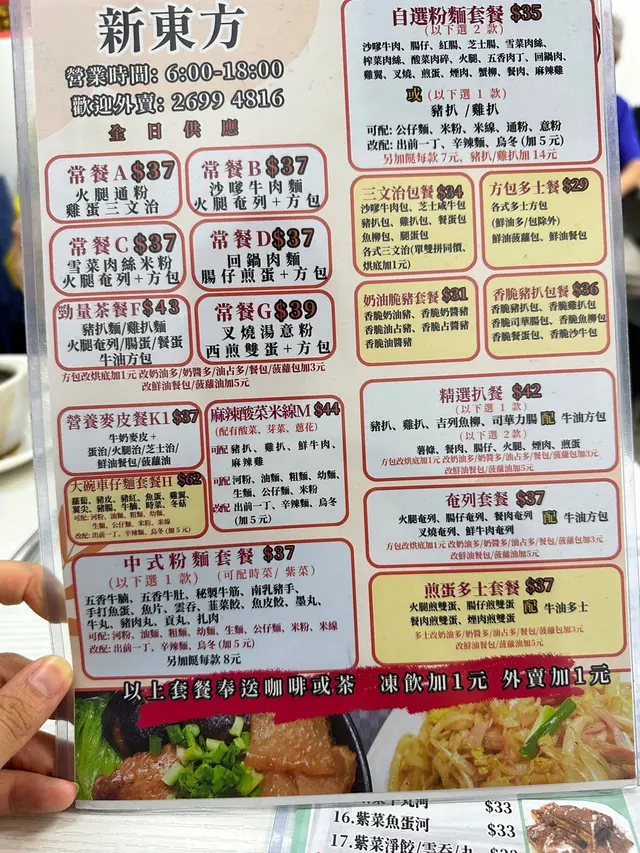 新東方
營業時間: 6:00-18:00
歡迎外賣: 2699 4816
全日供應
常餐A $37
火腿通粉
雞蛋三文治
常餐B $37
沙嗲牛肉麵
火腿奄列+方包
常餐C $37
雪菜肉絲米粉
火腿奄列+方包
常餐D $37
回鍋肉麵
腸仔煎蛋+方包
勁量茶餐F $43
豬扒麵/雞扒麵
火腿奄列/腸蛋/餐蛋
牛油方包
常餐G $39
叉燒湯意粉
西煎雙蛋+方包
方包改烘底加1元 改奶油多/奶醬多/油占多/餐包/菠蘿包加3元
改鮮油餐包/菠蘿油加5元
營養麥皮餐K1 $37
牛奶麥皮+
蛋治/火腿治/芝士治/
鮮油餐包/菠蘿油
大碗車仔麵套餐H $62
蘿蔔、豬皮、豬紅、魚蛋、雞翼、
翼尖、豬腸、牛腩、時菜、冬菇
可配: 河粉、油麵、粗麵、幼麵、
生麵、公仔麵、米粉、米線
改配: 出前一丁、辛辣麵、烏冬(加5元)
麻辣酸菜米線M $44
(配有酸菜、芽菜、蔥花)
可配 豬扒、雞扒、鮮牛肉、
麻辣雞
可配 河粉、油麵、粗麵、幼麵、
生麵、公仔麵、米粉
改配 出前一丁、辛辣麵、烏冬
(加5元)
中式粉麵套餐 $37
(以下選1款) (可配時菜/紫菜)
五香牛腩、五香牛肚、秘製牛筋、南乳豬手、
手打魚蛋、魚片、雲吞、韮菜餃、魚皮餃、墨丸、
牛丸、豬肉丸、貢丸、扎肉
可配: 河粉、油麵、粗麵、幼麵、生麵、公仔麵、米粉、米線
改配: 出前一丁、辛辣麵、烏冬(加5元)
另加餸每款8元
自選粉麵套餐 $35
(以下選2款)
沙嗲牛肉、腸仔、紅腸、芝士腸、雪菜肉絲、
榨菜肉絲、酸菜肉碎、火腿、五香肉丁、回鍋肉、
雞翼、叉燒、煎蛋、煙肉、蟹柳、餐肉、麻辣雞
或(以下選1款)
豬扒/雞扒
可配: 公仔麵、米粉、米線、通粉、意粉
改配: 出前一丁、辛辣麵、烏冬(加5元)
另加餸每款7元, 豬扒/雞扒加14元
三文治包餐 $34
沙嗲牛肉包、芝士咸牛包
豬扒包、雞扒包、餐蛋包
魚柳包、腿蛋包
各式三文治(單雙拼同價,
烘底加1元)
方包多士餐 $29
各式多士方包
(鮮油多/包除外)
鮮油菠蘿包、鮮油餐包
奶油脆豬套餐 $31
香脆奶油豬、香脆奶醬豬
香脆油占豬、香脆占醬豬
香脆油醬豬
香脆豬扒包餐 $36
香脆豬扒包、香脆雞扒包
香脆司華腸包、香脆魚柳包
香脆餐蛋包、香脆沙牛包
精選扒餐 $42
(以下選1款)
豬扒、雞扒、吉列魚柳、司華力腸 配 牛油方包
(以下選2款)
薯條、餐肉、腸仔、火腿、煙肉、煎蛋
方包改烘底加1元 改奶油多/奶醬多/油占多/餐包/菠蘿包加3元
改鮮油餐包/菠蘿油加5元
奄列套餐 $37
火腿奄列、腸仔奄列、餐肉奄列 配 牛油方包
叉燒奄列、鮮牛肉奄列
方包改烘底加1元 改奶油多/奶醬多/油占多/餐包/菠蘿包加3元
改鮮油餐包/菠蘿油加5元
煎蛋多士套餐 $37
火腿煎雙蛋、腸仔煎雙蛋 配 牛油多士
餐肉煎雙蛋、煙肉煎雙蛋
多士改奶油多/奶醬多/油占多/餐包/菠蘿包加3元
改鮮油餐包/菠蘿油加5元
以上套餐奉送咖啡或茶 凍飲加1元 外賣加1元
$33
16.紫菜魚蛋河 $33
17.紫菜淨餃/雲吞/丸 $33